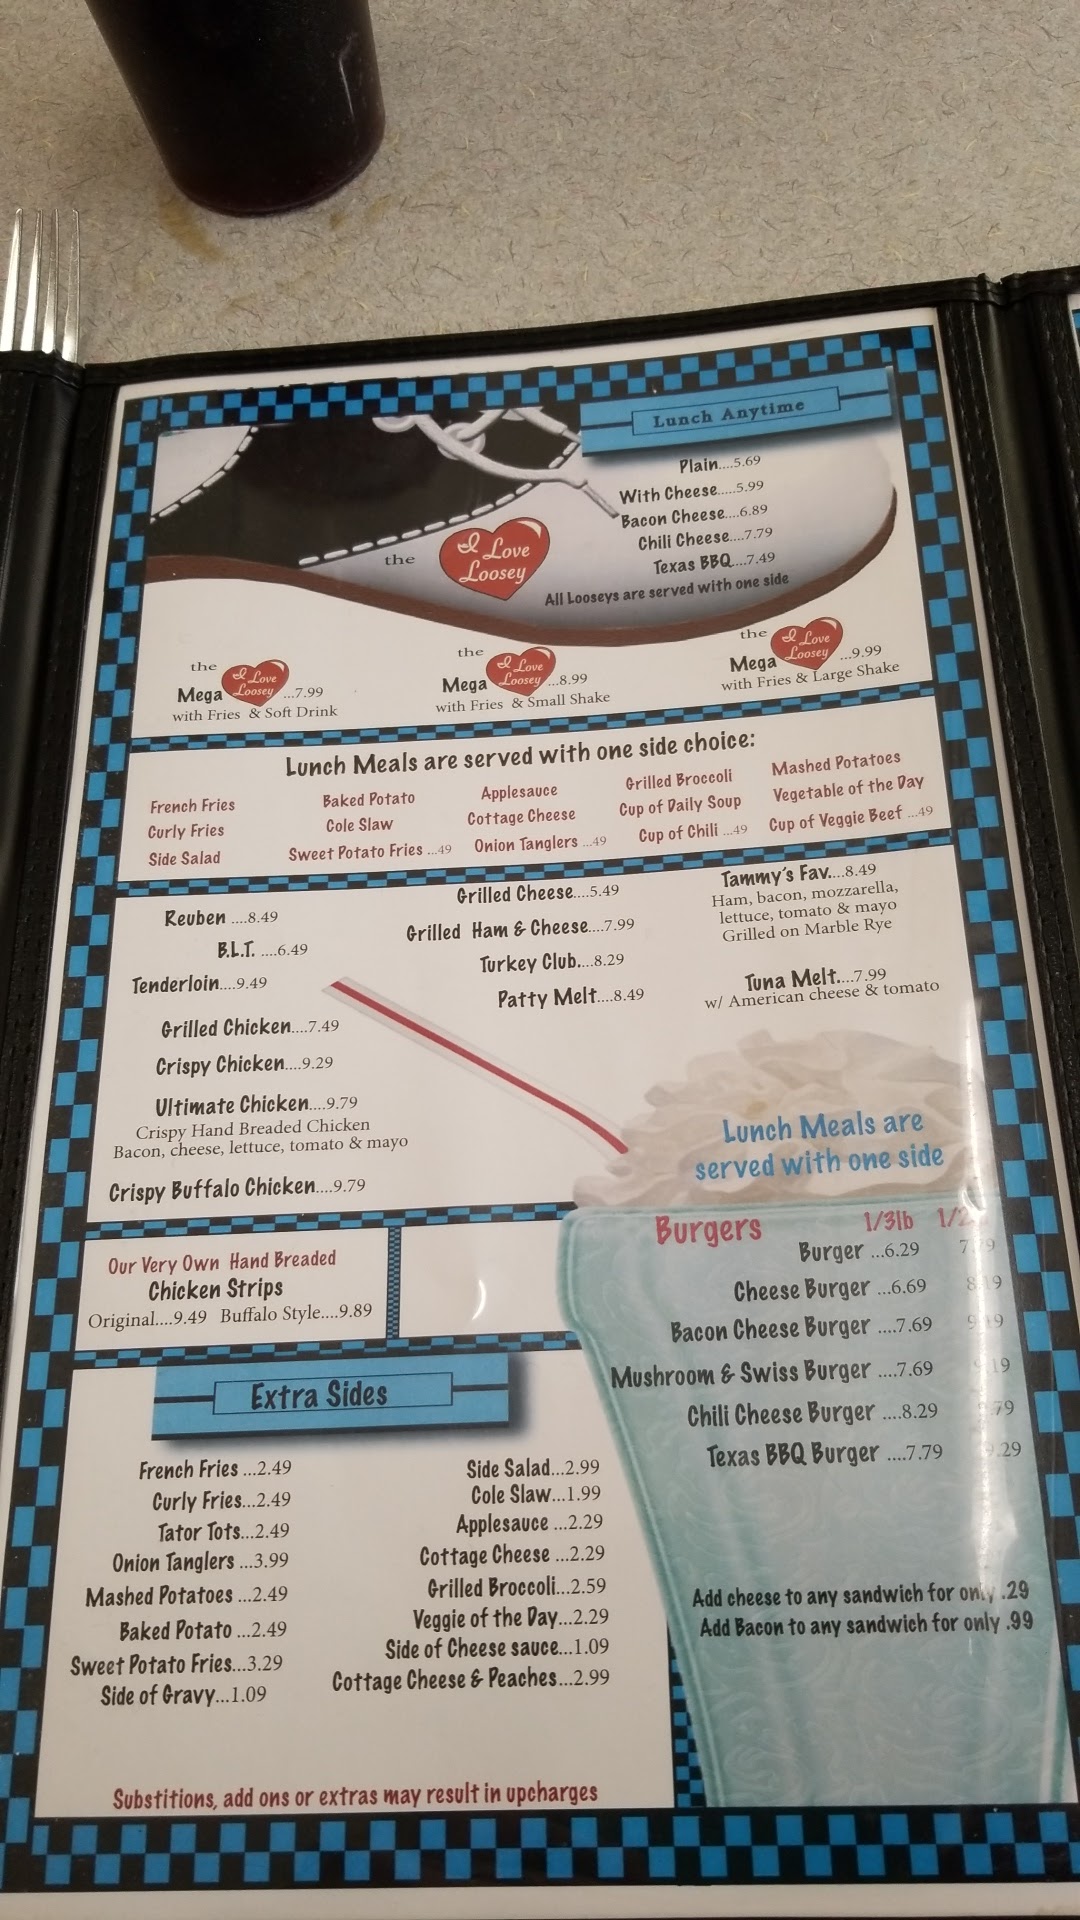 Lunch Anytime
Plain....5.69
With Cheese.....5.99
Bacon Cheese....6.89
Chili Cheese....7.79
Texas BBQ....7.49
All Looseys are served with one side
the
I Love
Loosey
the
Mega I Love Loosey ...7.99
with Fries & Soft Drink
the
Mega I Love Loosey ...8.99
with Fries & Small Shake
the
Mega I Love Loosey ...9.99
with Fries & Large Shake
Lunch Meals are served with one side choice:
French Fries
Curly Fries
Side Salad
Baked Potato
Cole Slaw
Sweet Potato Fries ...49
Applesauce
Cottage Cheese
Onion Tanglers ...49
Grilled Broccoli
Cup of Daily Soup
Cup of Chili ...49
Mashed Potatoes
Vegetable of the Day
Cup of Veggie Beef ...49
Reuben ....8.49
B.L.T. ....6.49
Tenderloin....9.49
Grilled Chicken....7.49
Crispy Chicken....9.29
Ultimate Chicken....9.79
Crispy Hand Breaded Chicken
Bacon, cheese, lettuce, tomato & mayo
Crispy Buffalo Chicken....9.79
Grilled Cheese....5.49
Grilled Ham & Cheese....7.99
Turkey Club....8.29
Patty Melt....8.49
Tammy's Fav....8.49
Ham, bacon, mozzarella,
lettuce, tomato & mayo
Grilled on Marble Rye
Tuna Melt....7.99
w/ American cheese & tomato
Lunch Meals are
served with one side
Our Very Own Hand Breaded
Chicken Strips
Original....9.49 Buffalo Style....9.89
Burgers 1/3lb
Burger ...6.29
Cheese Burger ...6.69
Bacon Cheese Burger ....7.69
Mushroom & Swiss Burger ....7.69
Chili Cheese Burger ....8.29
Texas BBQ Burger ....7.79
Add cheese to any sandwich for only .29
Add Bacon to any sandwich for only .99
Extra Sides
French Fries ...2.49
Curly Fries...2.49
Tator Tots...2.49
Onion Tanglers ...3.99
Mashed Potatoes ...2.49
Baked Potato ...2.49
Sweet Potato Fries...3.29
Side of Gravy...1.09
Side Salad...2.99
Cole Slaw...1.99
Applesauce ...2.29
Cottage Cheese ...2.29
Grilled Broccoli...2.59
Veggie of the Day...2.29
Side of Cheese sauce...1.09
Cottage Cheese & Peaches...2.99
Substitions, add ons or extras may result in upcharges